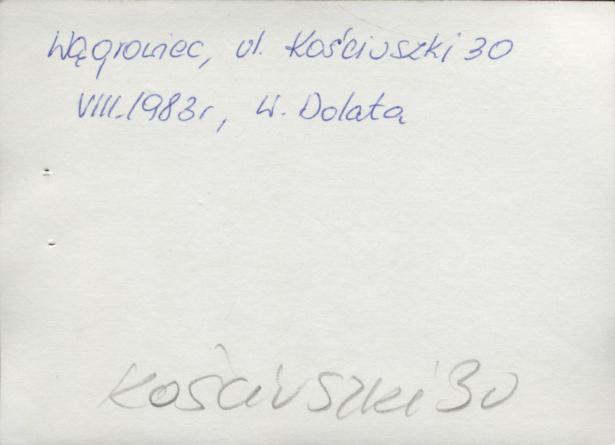 Wągrowiec, ul. Kościuszki 30
VIII.1983r, W. Dolata
Kościuszki 30